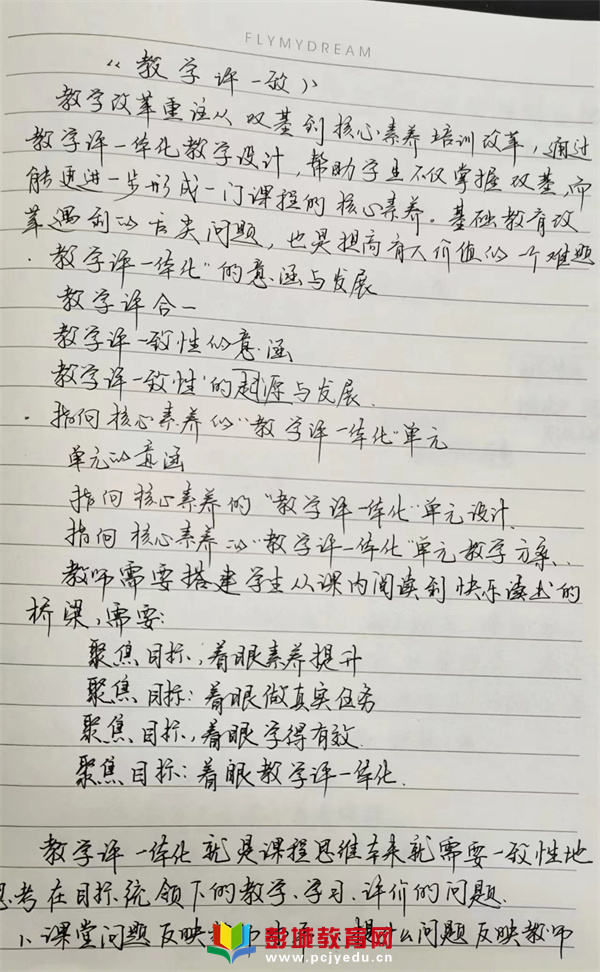 FLYMYDREAM
《教学评一致》
教学改革重注从双基到核心素养培训改革，通过
教学评一体化教学设计，帮助学生不仅掌握双基，而
能更进一步形成一门课程的核心素养。基础教育改
革遇到的  问题，也是提高育人价值的一个难题
·教学评一体化"的意涵与发展
教学评合一
教学评一致性的意涵
教学评一致性'的起源与发展.
·指向核心素养的"教学评一体化"单元
单元的意涵
指向核心素养的"教学评一体化"单元设计.
指向核心素养的"教学评一体化"单元教学方案.
教师需要搭建学生从课内阅读到快乐读书的
桥梁，需要:
聚焦目标，着眼素养提升
聚焦目标：着眼做真实任务
聚焦目标，着眼学得有效.
聚焦目标：着眼教学评一体化.
教学评一体化就是课程思维本来就需要一致性地
思考在目标统领下的教学、学习、评价的问题.
1、课堂问题反映教师   提什么问题反映教师
彭城教育网
www.pcjyedu.cn